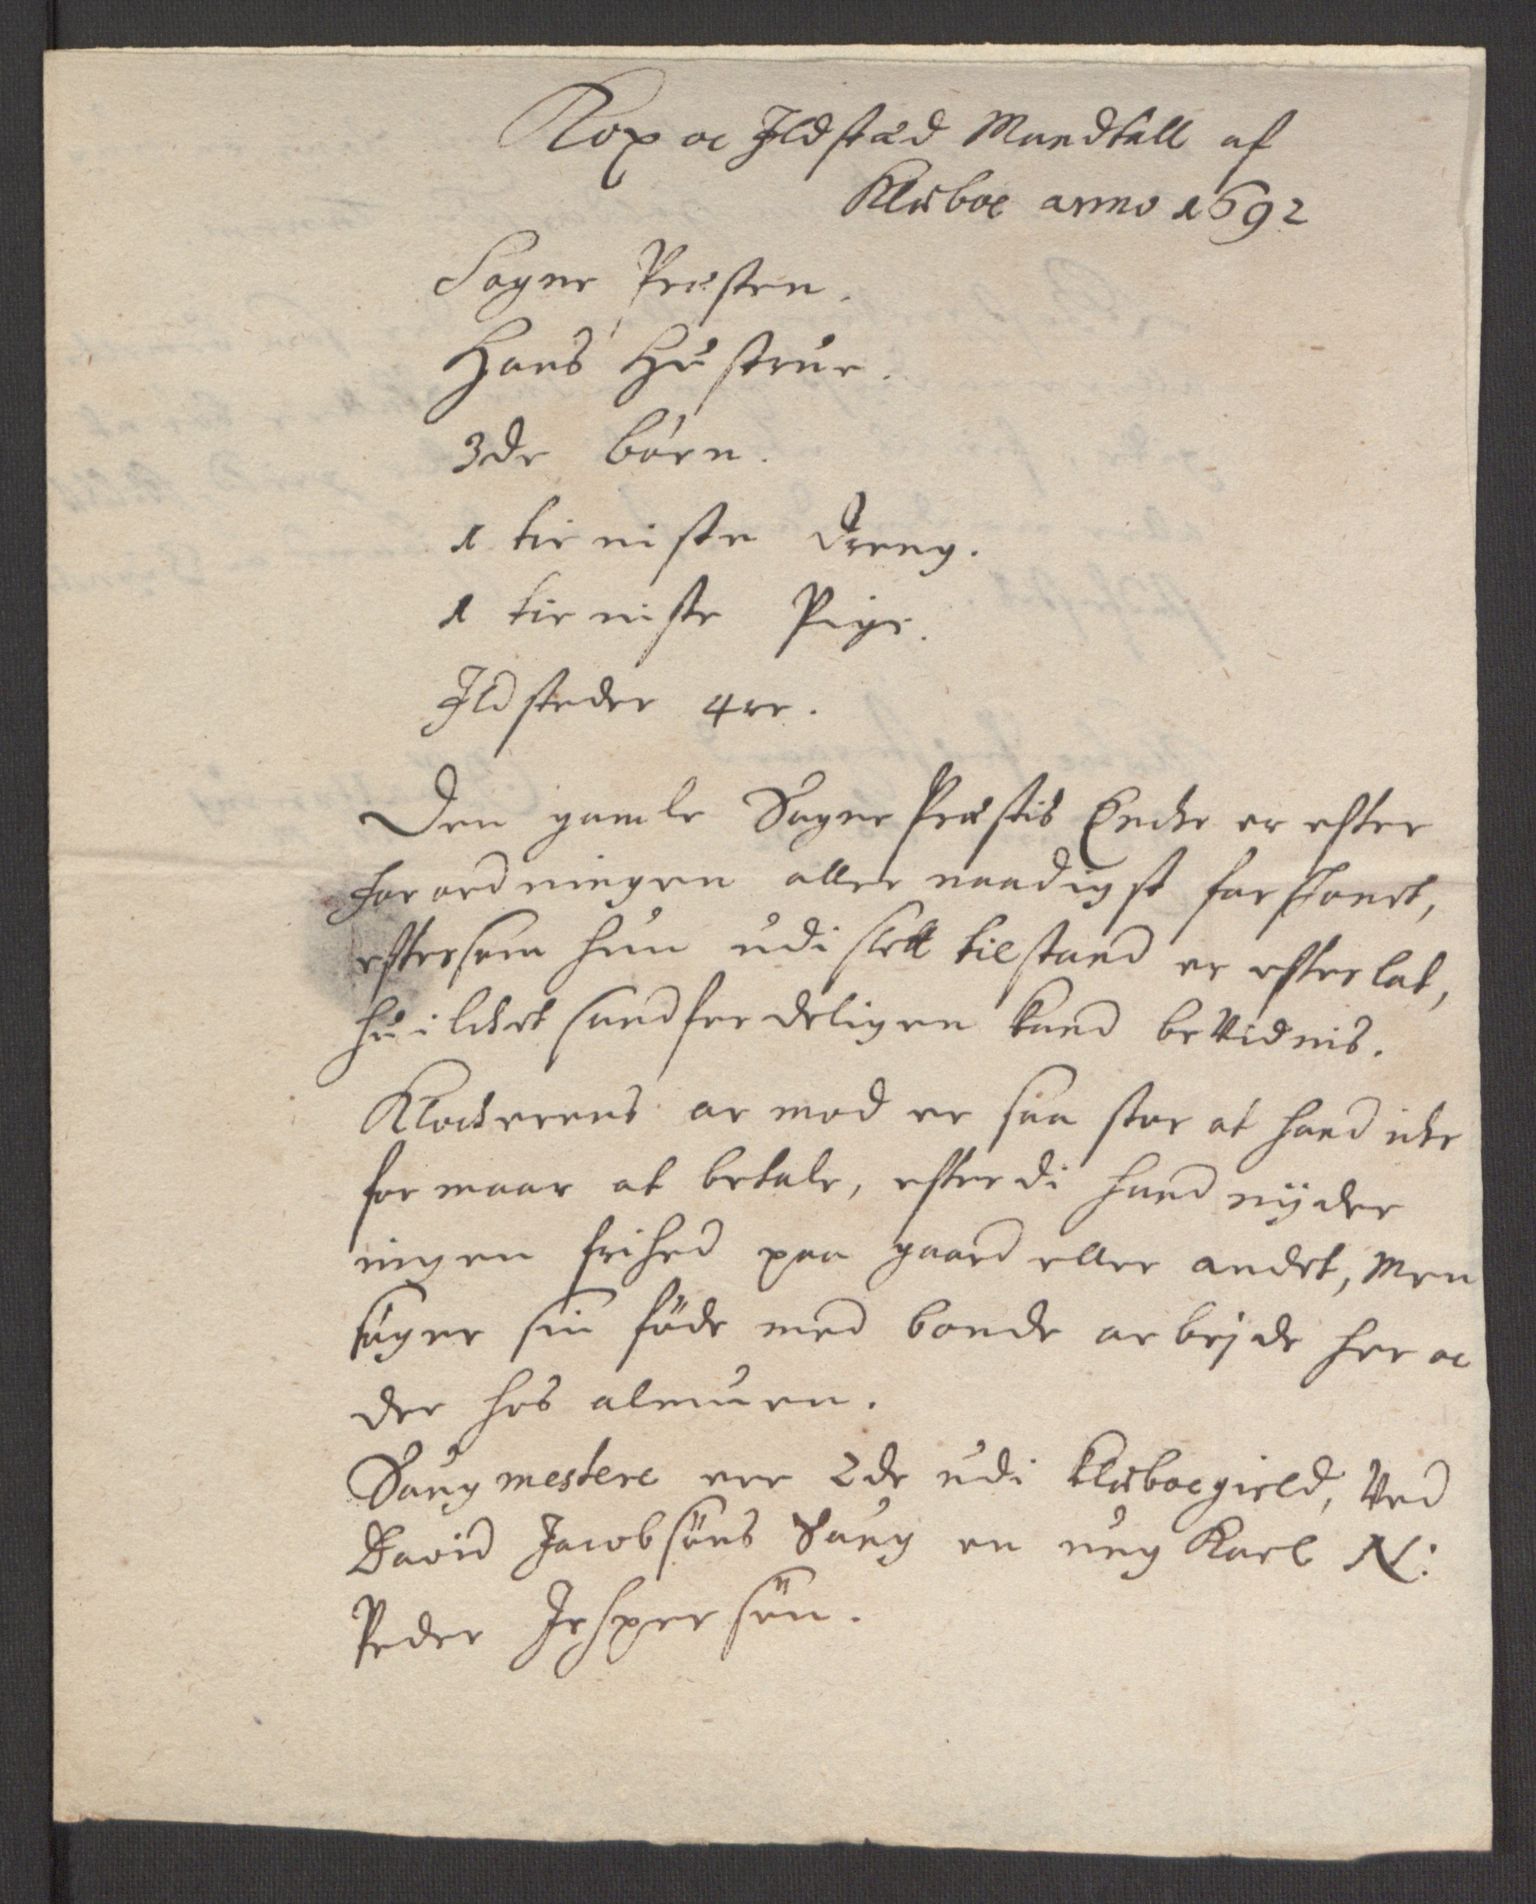 Kop oc Ildstæd Mandtall af
Kluboe anno 1692
Sogne Præsten.
Hans Hustrue.
3de børn.
1 tieniste dreng.
1 tieniste Pige.
Ildsteder 4re.
Den gamle Sogne Præstis Encke er efter
forordningen aller naadigst forskont,
eftersom hun udi slett tilstand er efterlat,
huilcket sandferdeligen kand bevidnis.
Klockerens armod er saa stor at hand icke
formaar at betale, efterdi hand nyder
ingen frihed paa gaard eller andet, Men
søger sin føde med bonde arbejde her oc
der hos almuen.
Saugmestere ere 2de udi Kluboegield, Ved
David Jacobsøns Saug en ung Karl N:
Peder Jespersøn.